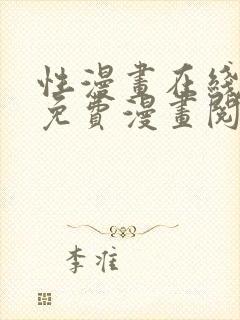 性漫畫在綫
免費漫畫閱
李准